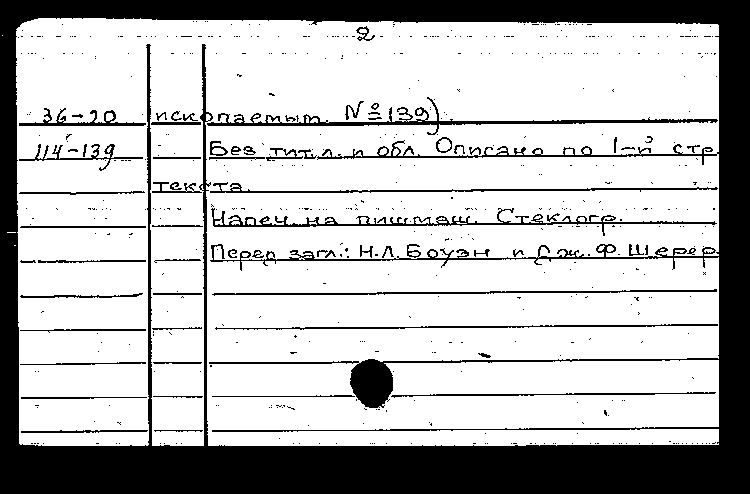 2
36-20 ископаемым. № 139)
114-139 Без тит. л. и обл. Описано по 1-й стр.
текста.
Напеч. на пишмаш. Стеклогр.
Перед загл.: Н.Л. Боуэн и Дж. Ф. Шерер.